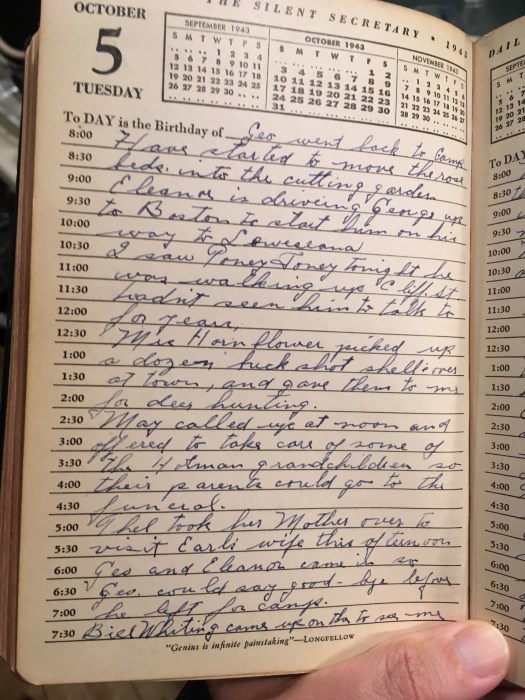 THE SILENT SECRETARY • 1943
OCTOBER
5
TUESDAY
SEPTEMBER 1943
S M T W T F S
.. .. .. 1 2 3 4
5 6 7 8 9 10 11
12 13 14 15 16 17 18
19 20 21 22 23 24 25
26 27 28 29 30 .. ..
OCTOBER 1943
S M T W T F S
.. .. .. .. .. 1 2
3 4 5 6 7 8 9
10 11 12 13 14 15 16
17 18 19 20 21 22 23
24 25 26 27 28 29 30
31 .. .. .. .. .. ..
NOVEMBER 1943
S M T W T F S
.. 1 2 3 4 5 6
7 8 9 10 11 12 13
14 15 16 17 18 19 20
21 22 23 24 25 26 27
28 29 30 .. .. .. ..
To DAY is the Birthday of Geo went back to Camp
8:00 Have started to move the rose
8:30 beds into the cutting garden
9:00 Eleanor is driveing George up
9:30 to Boston to start him on his
10:00 way to Lowiseana
10:30 I saw Toney Toney tonight he
11:00 was walking up Cliff St
11:30 hadnt seen him to talk to
12:00 for years,
12:30 Mrs Hornflower picked up
1:00 a dozen buck shot shells over
1:30 at town, and gave them to me
2:00 for deer hunting.
2:30 May called up at noon and
3:00 offered to take care of some of
3:30 the Holman grandchildren so
4:00 their parents could go to the
4:30 funeral.
5:00 Phil took her Mother over to
5:30 visit Earls wife this afternoon
6:00 Geo and Eleanor came in so
6:30 Geo. could say good-bye before
7:00 he left for camp.
7:30 Bill Whiting came up on tha to see me
"Genius is infinite painstaking"—LONGFELLOW
DAIL
SEPTE
To DAY
8:00
8:30
9:00
9:30
10:00
10:30
11:00
11:30
12:00
12:30
1:00
1:30
2:00
2:30
3:00
3:30
4:00
4:30
5:00
5:30
6:00
6:30
7:00
7:30